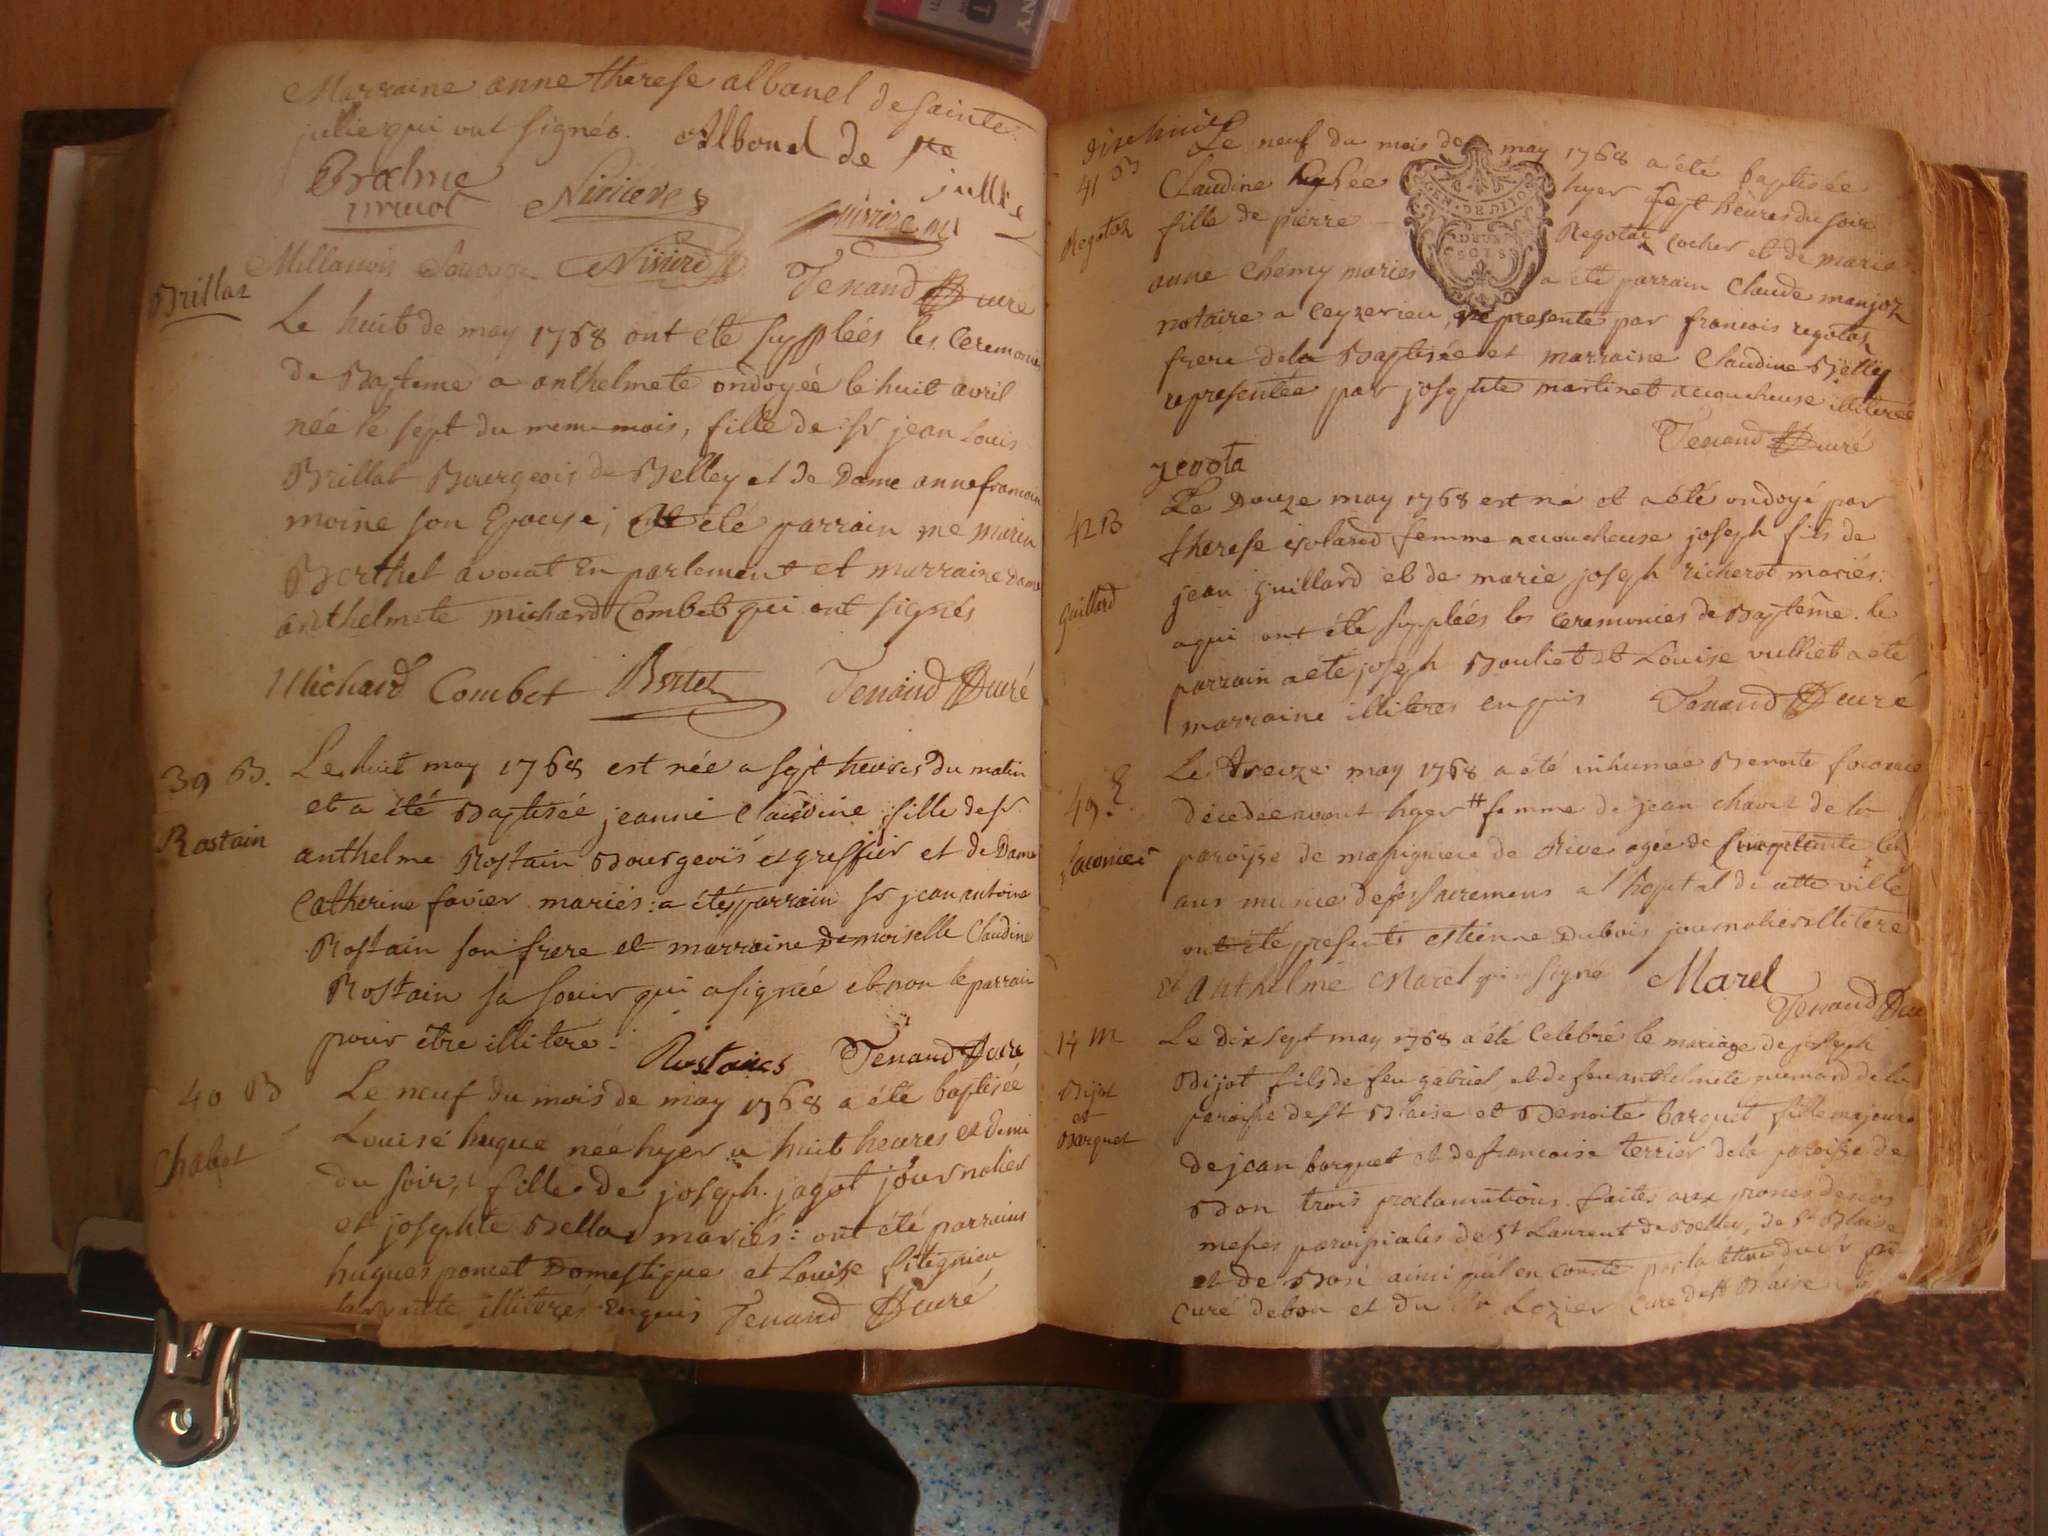 Marraine anne therese albanel de sainte
julie qui ont signés. Albanel de ste
julle
Millanois Sauvage
Tenand curé
Brillat
Le huit de may 1768 ont été supplées les ceremonies
de Bapteme a anthelmete ondoyée le huit avril
née le sept du meme mois, fille de sr jean Louis
Brillat Bourgeois de Belley et de Dame anne francoise
moine son Epouse; a été parrain me marin
Berthet avocat En parlement et marraine dame
anthelmete michard Combet qui ont signés
Michard Combet Bertet Tenand curé
39 B.
Rostain
Le huit may 1768 est née a sept heures du matin
et a été Baptisée jeanne Claudine fille de sr
anthelme Rostain Bourgeois et greffier et de Dame
Catherine favier mariés: a été parrain sr jean antoine
Rostain son frere et marraine demoiselle Claudine
Rostain sa soeur qui a signée et non le parrain
pour être illiteré:
Rostaing Tenand curé
40 B
Chabot
Le neuf du mois de may 1768 a été baptisée
Louise hugue née hyer a huit heures et demi
du soir, fille de joseph jagot journalier
et josephte Bella mariés: ont été parrains
hugues poncet Domestique et Louise
illiterés enquis Tenand curé
dix huit
41 B
Regotaz
Le neuf du mois de may 1768 a été baptisée
Claudine née hyer sept heures du soir
fille de pierre Regotaz cocher et de marie
anne Chemy mariés a été parrain Claude manjoz
notaire a Ceyzerieu, représenté par francois regotaz
frere de la Baptisée et marraine Claudine Belley
représentée par josephte martinet accoucheuse illiterée
Tenand curé
GEN. DE LION
DEUX
SOLS
42 B
guillard
Le Douze may 1768 est né et a été ondoyé par
therese voland femme accoucheuse joseph fils de
jean guillard et de marie joseph richerot mariés.
a qui ont été supplées les ceremonies de Baptême. le
parrain a été joseph Bouliet et Louise vulliet a été
marraine illiterés enquis Tenand curé
49. E.
Le treize may 1768 a été inhumée Benoite
décédée avant hyer # femme de jean chavet de la
paroisse de massignieu de Rive agée de cinquante
ans munie de ses sacremens a l'hopital de cette ville
ont été presents estienne Dubois journalier illiteré
et anthelme Marel qui signé Marel
Tenand curé
14 M
Bijot
et
Barquet
Le dix sept may 1768 a été Celebré le mariage de joseph
Bijot fils de feu gabriel et de feu anthelmete de la
paroisse de st Blaise et Benoite barquet fille majeure
de jean barquet et de francoise terrier de la paroisse de
Bon trois proclamations faites aux prones de nos
messes paroissiales de St Laurent de Belley, de St Blaise
et de Bon ainsi qu'il en conste par la lettre du sr
curé de bon et du sr Lozier curé de st Blaise